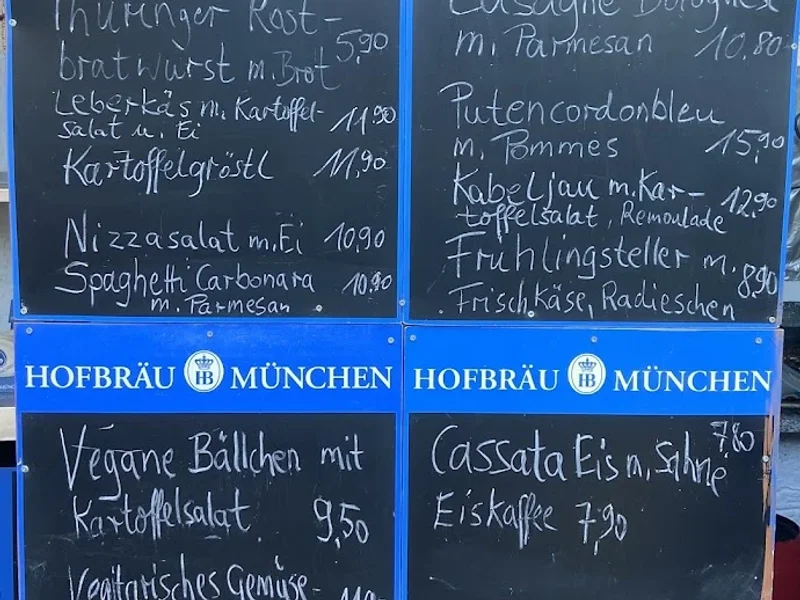 Thüringer Rost-
bratwurst m. Brot 5,90
Leberkäs m. Kartoffel-
salat u. Ei 11,90
Kartoffelgröstl 11,90
Nizzasalat m. Ei 10,90
Spaghetti Carbonara 10,90
m. Parmesan
Lasagne Bolognese
m. Parmesan 10,80
Putencordonbleu
m. Pommes 15,90
Kabeljau m. Kar- 12,90
toffelsalat, Remoulade
Frühlingsteller m. 8,90
Frischkäse, Radieschen
HOFBRÄU HB MÜNCHEN
Vegane Bällchen mit
Kartoffelsalat 9,50
Vegitarisches Gemüse-
HOFBRÄU HB MÜNCHEN
Cassata Eis m. Sahne 7,80
Eiskaffee 7,90